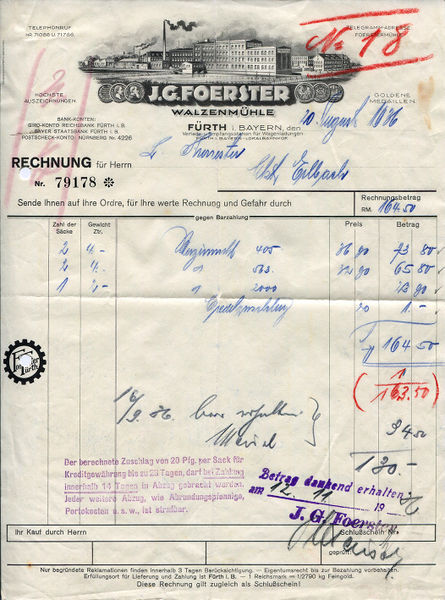 TELEPHONRUF
NR. 71066 U. 71766.
TELEGRAMM-ADRESSE
FOERSTERMÜHLE
No 18
J.G. FOERSTER
WALZENMÜHLE
HÖCHSTE
AUSZEICHNUNGEN.
GOLDENE
MEDAILLEN.
BANK-KONTEN:
GIRO-KONTO REICHSBANK FÜRTH I. B.
BAYER STAATSBANK FÜRTH I. B.
POSTSCHECK-KONTO: NÜRNBERG № 4226
FÜRTH I. BAYERN, den
20 August 1936
Verlade- u. Empfangsstation für Wagenladungen
FÜRTH I. BAYERN - LOKALBAHNHOF.
RECHNUNG für Herrn
Nr. 79178 ✻
Sende Ihnen auf Ihre Ordre, für Ihre werte Rechnung und Gefahr durch
Rechnungsbetrag
RM. 164.50
gegen Barzahlung
Zahl der Säcke
Gewicht Ztr.
Preis
Betrag
2 4.- 405 36 90 73 80
2 4.- 563 32 90 65 80
1 2.- 2000 23 90
20 1.-
164 50
1
163.50
34 50
130.-
16/9. 36.
Der berechnete Zuschlag von 20 Pfg. per Sack für
Kreditgewährung bis zu 28 Tagen, darf bei Zahlung
innerhalb 14 Tagen in Abzug gebracht werden.
Jeder weitere Abzug, wie Abrundungspfennige,
Portokosten u. s. w., ist strafbar.
Betrag dankend erhalten
am 12. 11. 1936
J. G. Foerster
Ihr Kauf durch Herrn
Schlußschein Nr.
geprüft:
Nur begründete Reklamationen finden innerhalb 3 Tagen Berücksichtigung. - Eigentumsrecht bis zur Bezahlung vorbehalten.
Erfüllungsort für Lieferung und Zahlung ist Fürth i. B. - 1 Reichsmark = 1/2790 kg Feingold.
Diese Rechnung gilt zugleich als Schlußschein!